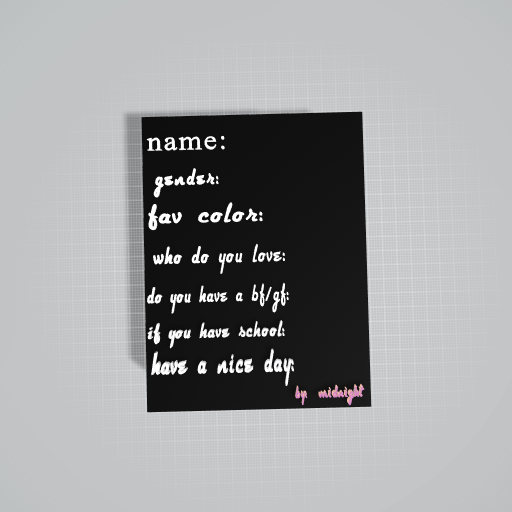 name:
gender:
fav color:
who do you love:
do you have a bf/gf:
if you have school:
have a nice day:
by midnight